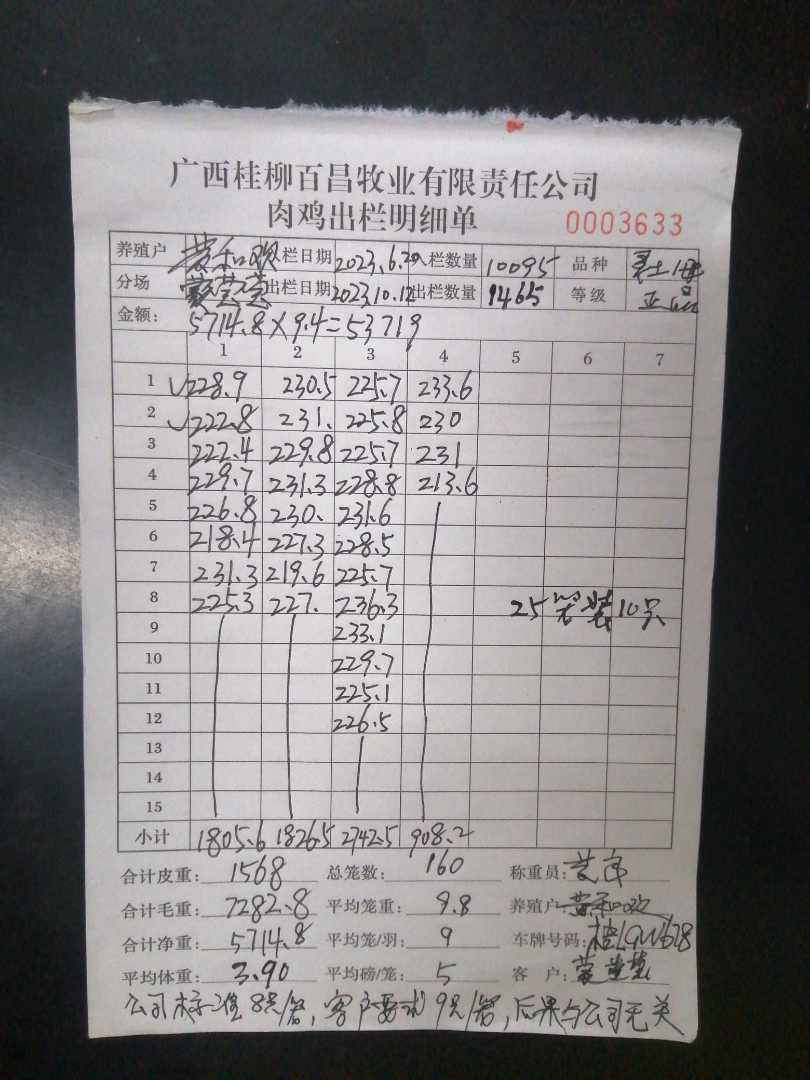 广西桂柳百昌牧业有限责任公司
肉鸡出栏明细单 0003633
养殖户 黄和欢 入栏日期 2023.6.20 入栏数量 10095 品种
分场 蒙莹莹 出栏日期 2023.10.12 出栏数量 1465 等级 正品
金额: 5714.8×9.4=53719
1 2 3 4 5 6 7
1 √228.9 230.5 225.7 233.6
2 √222.8 231. 225.8 230
3 222.4 229.8 225.7 231
4 229.7 231.3 228.8 213.6
5 226.8 230. 231.6
6 218.4 227.3 228.5
7 231.3 219.6 225.7
8 225.3 227. 236.3 25笼装10只
9 233.1
10 229.7
11 225.1
12 226.5
13
14
15
小计 1805.6 1826.5 2742.5 908.2
合计皮重: 1568 总笼数: 160 称重员:
合计毛重: 7282.8 平均笼重: 9.8 养殖户: 黄和欢
合计净重: 5714.8 平均笼/羽: 9 车牌号码:
平均体重: 3.90 平均磅/笼: 5 客户: 蒙莹莹
公司标准8只/笼,客户要求9只/笼,后果与公司无关